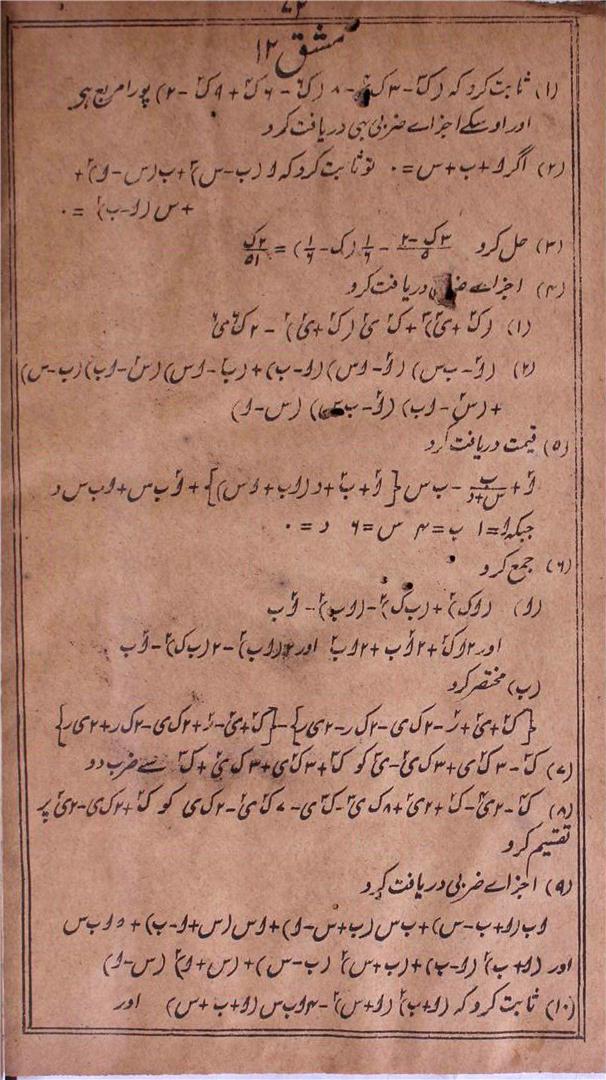 ۷۲
مشق ۱۲
(۱) ثابت کرو کہ (ک۲ - ۳ک) - ۸ (ک - ۶ک + ۹ک - ۲) پورا مربع ہی
اور اوسکے اجزاے ضربی بہی دریافت کرو
(۲) اگر ا + ب + س = ۰ تو ثابت کرو کہ ا (ب - س) + ب (س - ا) +
+ س (ا - ب) = ۰
(۳) حل کرو (۳ک - ۲)/۵ - ۱/۶ (ک - ۱/۶) = ۲ک/۱۵
(۴) اجزاے دریافت کرو
(۱) (ک۲ + ی۲) + ک۲ ی۲ (ک۲ + ی۲) - ۲ک ی
(۲) (ا۲ - ب س) (ا۲ - ا س) (ا - ب) + (ب۲ - ا س) (س۲ - ا ب) (ب - س)
+ (س۲ - ا ب) (ا۲ - ب س) (س - ا)
(۵) قیمت دریافت کرو
ا۲ + ب/(س + د) - ب س {ا۲ + ب۲ + د (ا ب + ا س)} + ا۲ ب س + ا ب س د
جبکہ ا = ۱ ب = ۴ س = ۶ د = ۰
(۶) جمع کرو
(ا) (ا ک)۲ + (ب ک)۲ - (ا ب)۲ - ا۲ ب
اور ۲ا ک۲ + ۲ا۲ ب + ۲ا ب۲ اور ۲(ا ب)۲ - ۲(ب ک)۲ - ا۲ ب
(ب) مختصر کرو
{ک۲ + ی۲ + ر۲ - ۲ک ی - ۲ک ر - ۲ی ر} - {ک۲ + ی۲ - ر۲ + ۲ک ی - ۲ک ر + ۲ی ر}
(۷) ک۳ - ۳ک۲ ی + ۳ک ی۲ - ی۳ کو ک۳ + ۳ک۲ ی + ۳ک ی۲ + ک۳ سے ضرب دو
(۸) ک - ۲ی - ک + ۲ی + ۸ک ی - ک ی - ۷ک ی - ۲ک ی کو ک۲ + ۲ک ی - ۲ی۲ پر
تقسیم کرو
(۹) اجزاے ضربی دریافت کرو
ا ب (ا + ب - س) + ب س (ب + س - ا) + ا س (س + ا - ب) + ۵ ا ب س
اور (ا + ب)۲ (ا - ب) + (ب + س)۲ (ب - س) + (س + ا)۲ (س - ا)
(۱۰) ثابت کرو کہ (ا + ب)۲ (ا + س)۲ - ۴ا ب س (ا + ب + س) اور